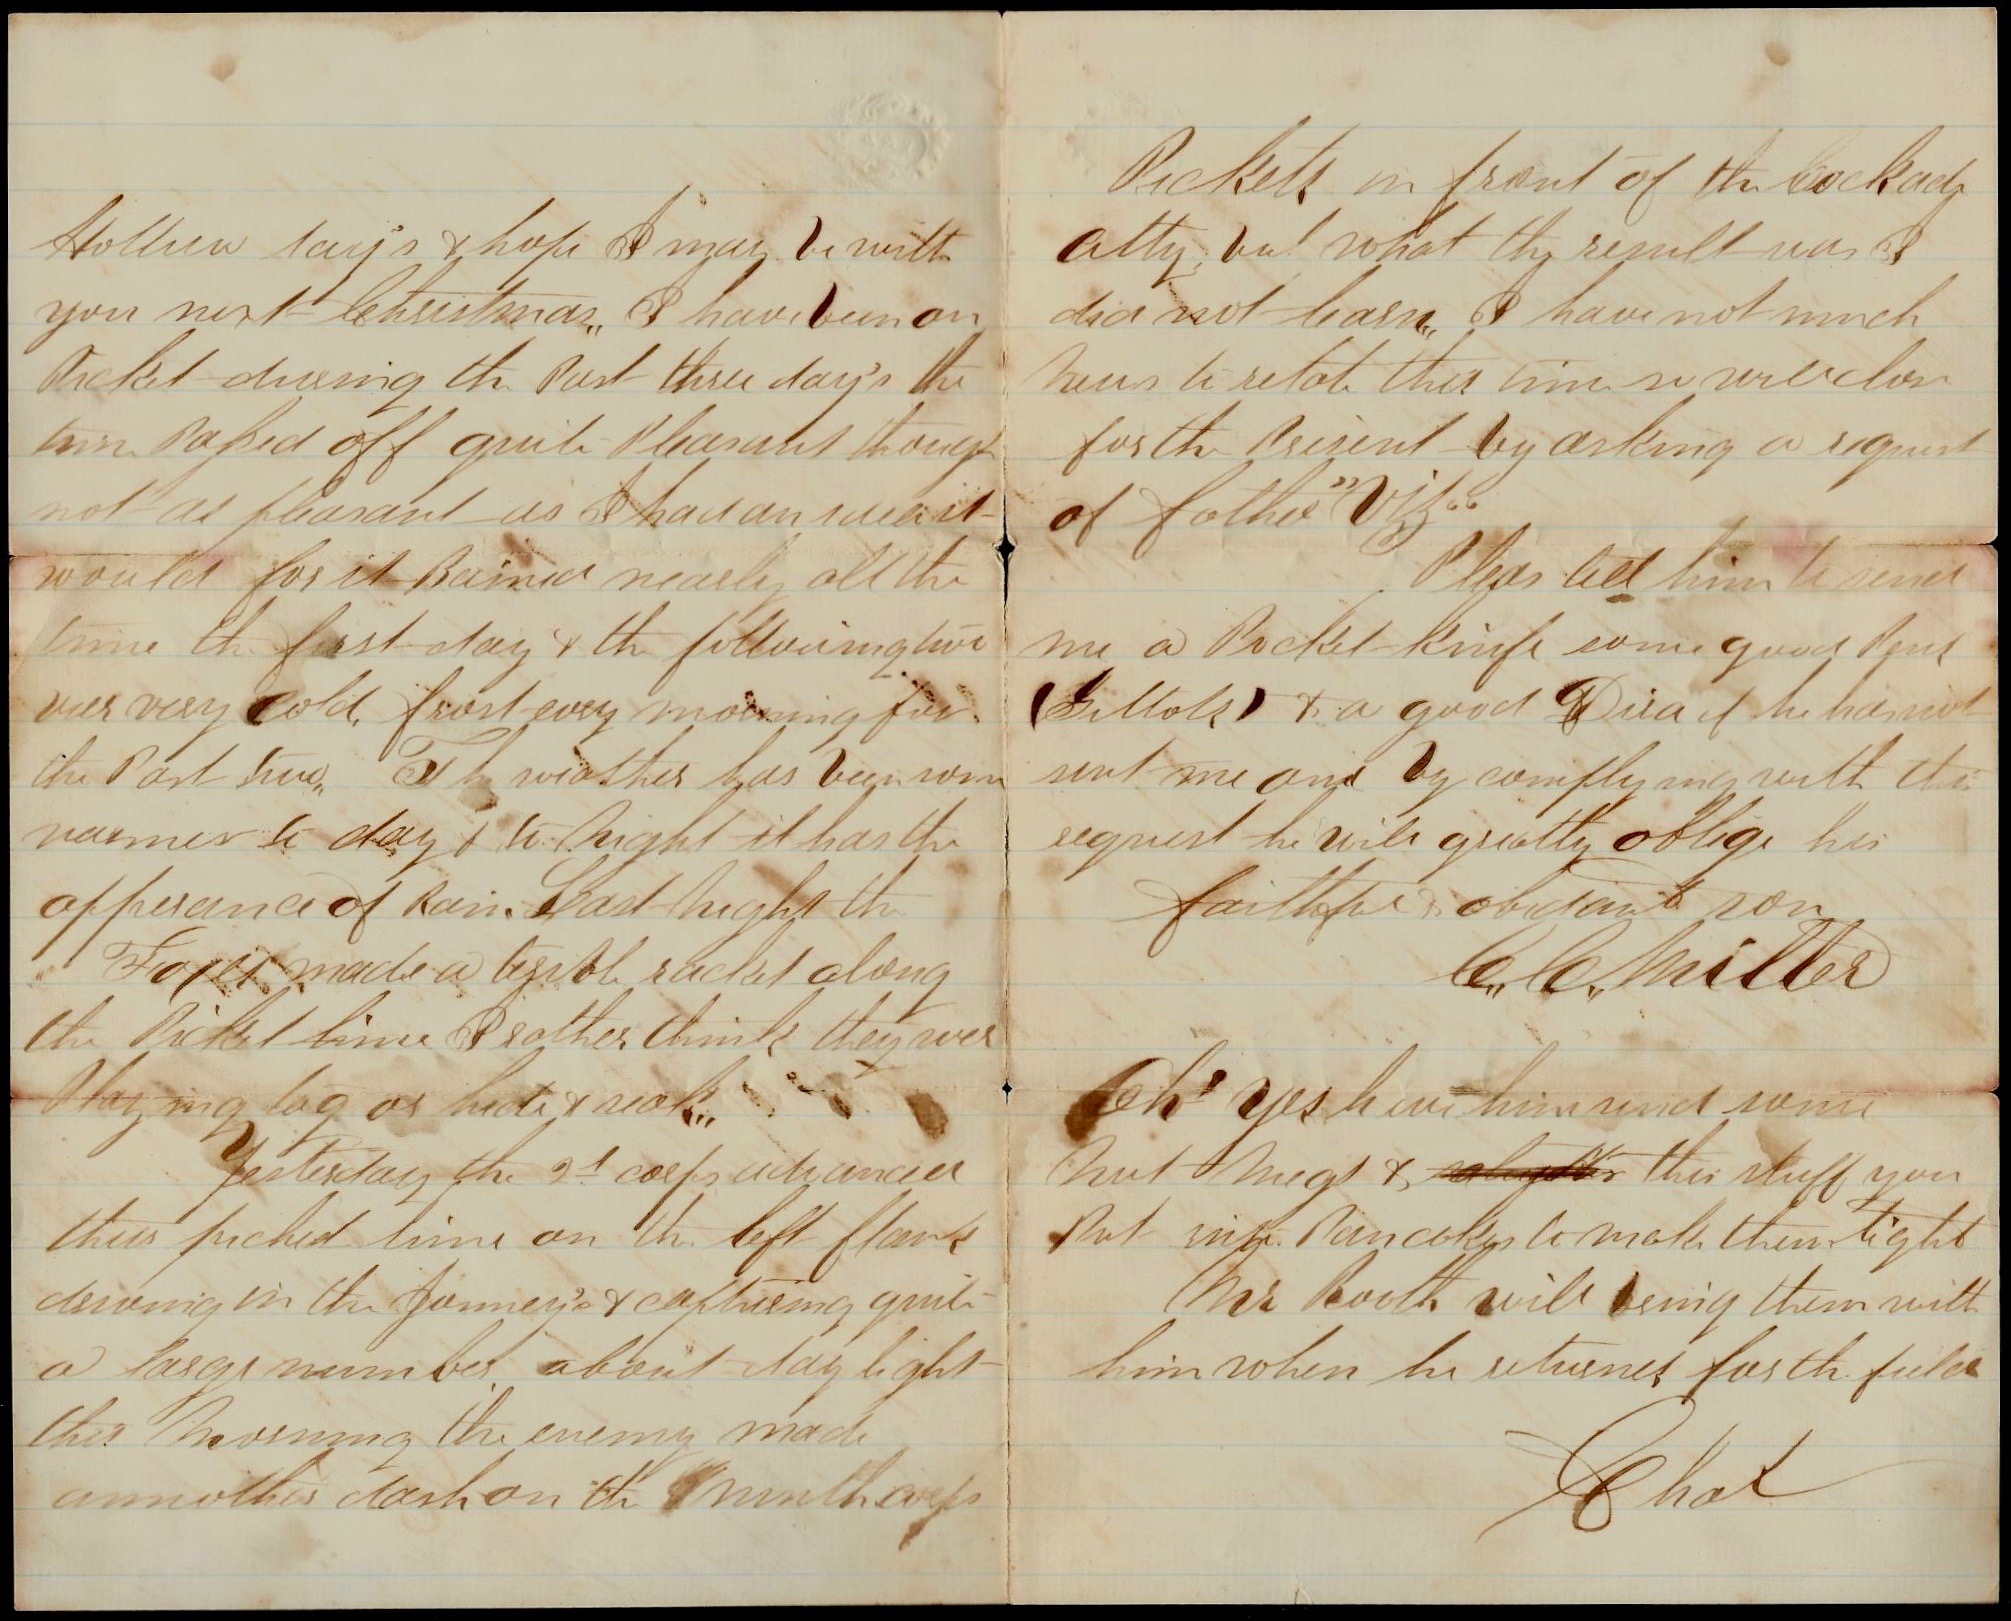 Hollew day's & hope I may be with
you next Christmas,, I have been on
Picket during the Past three day's the
time Passed off quite Pleasant though
not as pleasant as I had an idea it
would for it Rained nearly all the
time the first day & the following two
wer very cold, frost evry morning for
the Past two,, The weather has been som
warmer to day & to Night it has the
apperance of Rain. Last Night the
Foxes made a terible racket along
the Picket line I rather think they wer
Playing tag or hide & seak,,
Yesterday the 2d corps advanced
thier picked line on the left flank
driving in the Jonney's & capturing quite
a large number, about day light
this Morning the enemy made
annother dash on the Nineth corps
Pickets in front of the Cockade
Citty, but what thy result was I
did not learn,, I have not much
News to relate this time so will close
for the Present by asking a request
of father "Viz"
Pleas tell him to send
me a Pocket Knife some good Pens
(Gillots) & a good Dira if he has not
sent me one by complying with this
request he will greatly oblige his
faithful & obediant son
C,, C,, Miller
Oh' yes have him send some
Nut Megs & this stuff you
Put into Pancakes to make them light
Mr Booth will bring them with
him when he returnes for the field
Chat